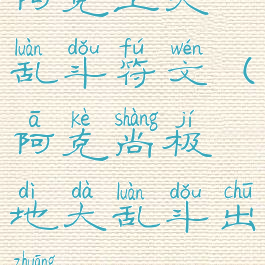 luàn dǒu fú wén
乱斗符文（
ā kè shàng jí
阿克尚极
dì dà luàn dǒu chū
地大乱斗出
zhuāng